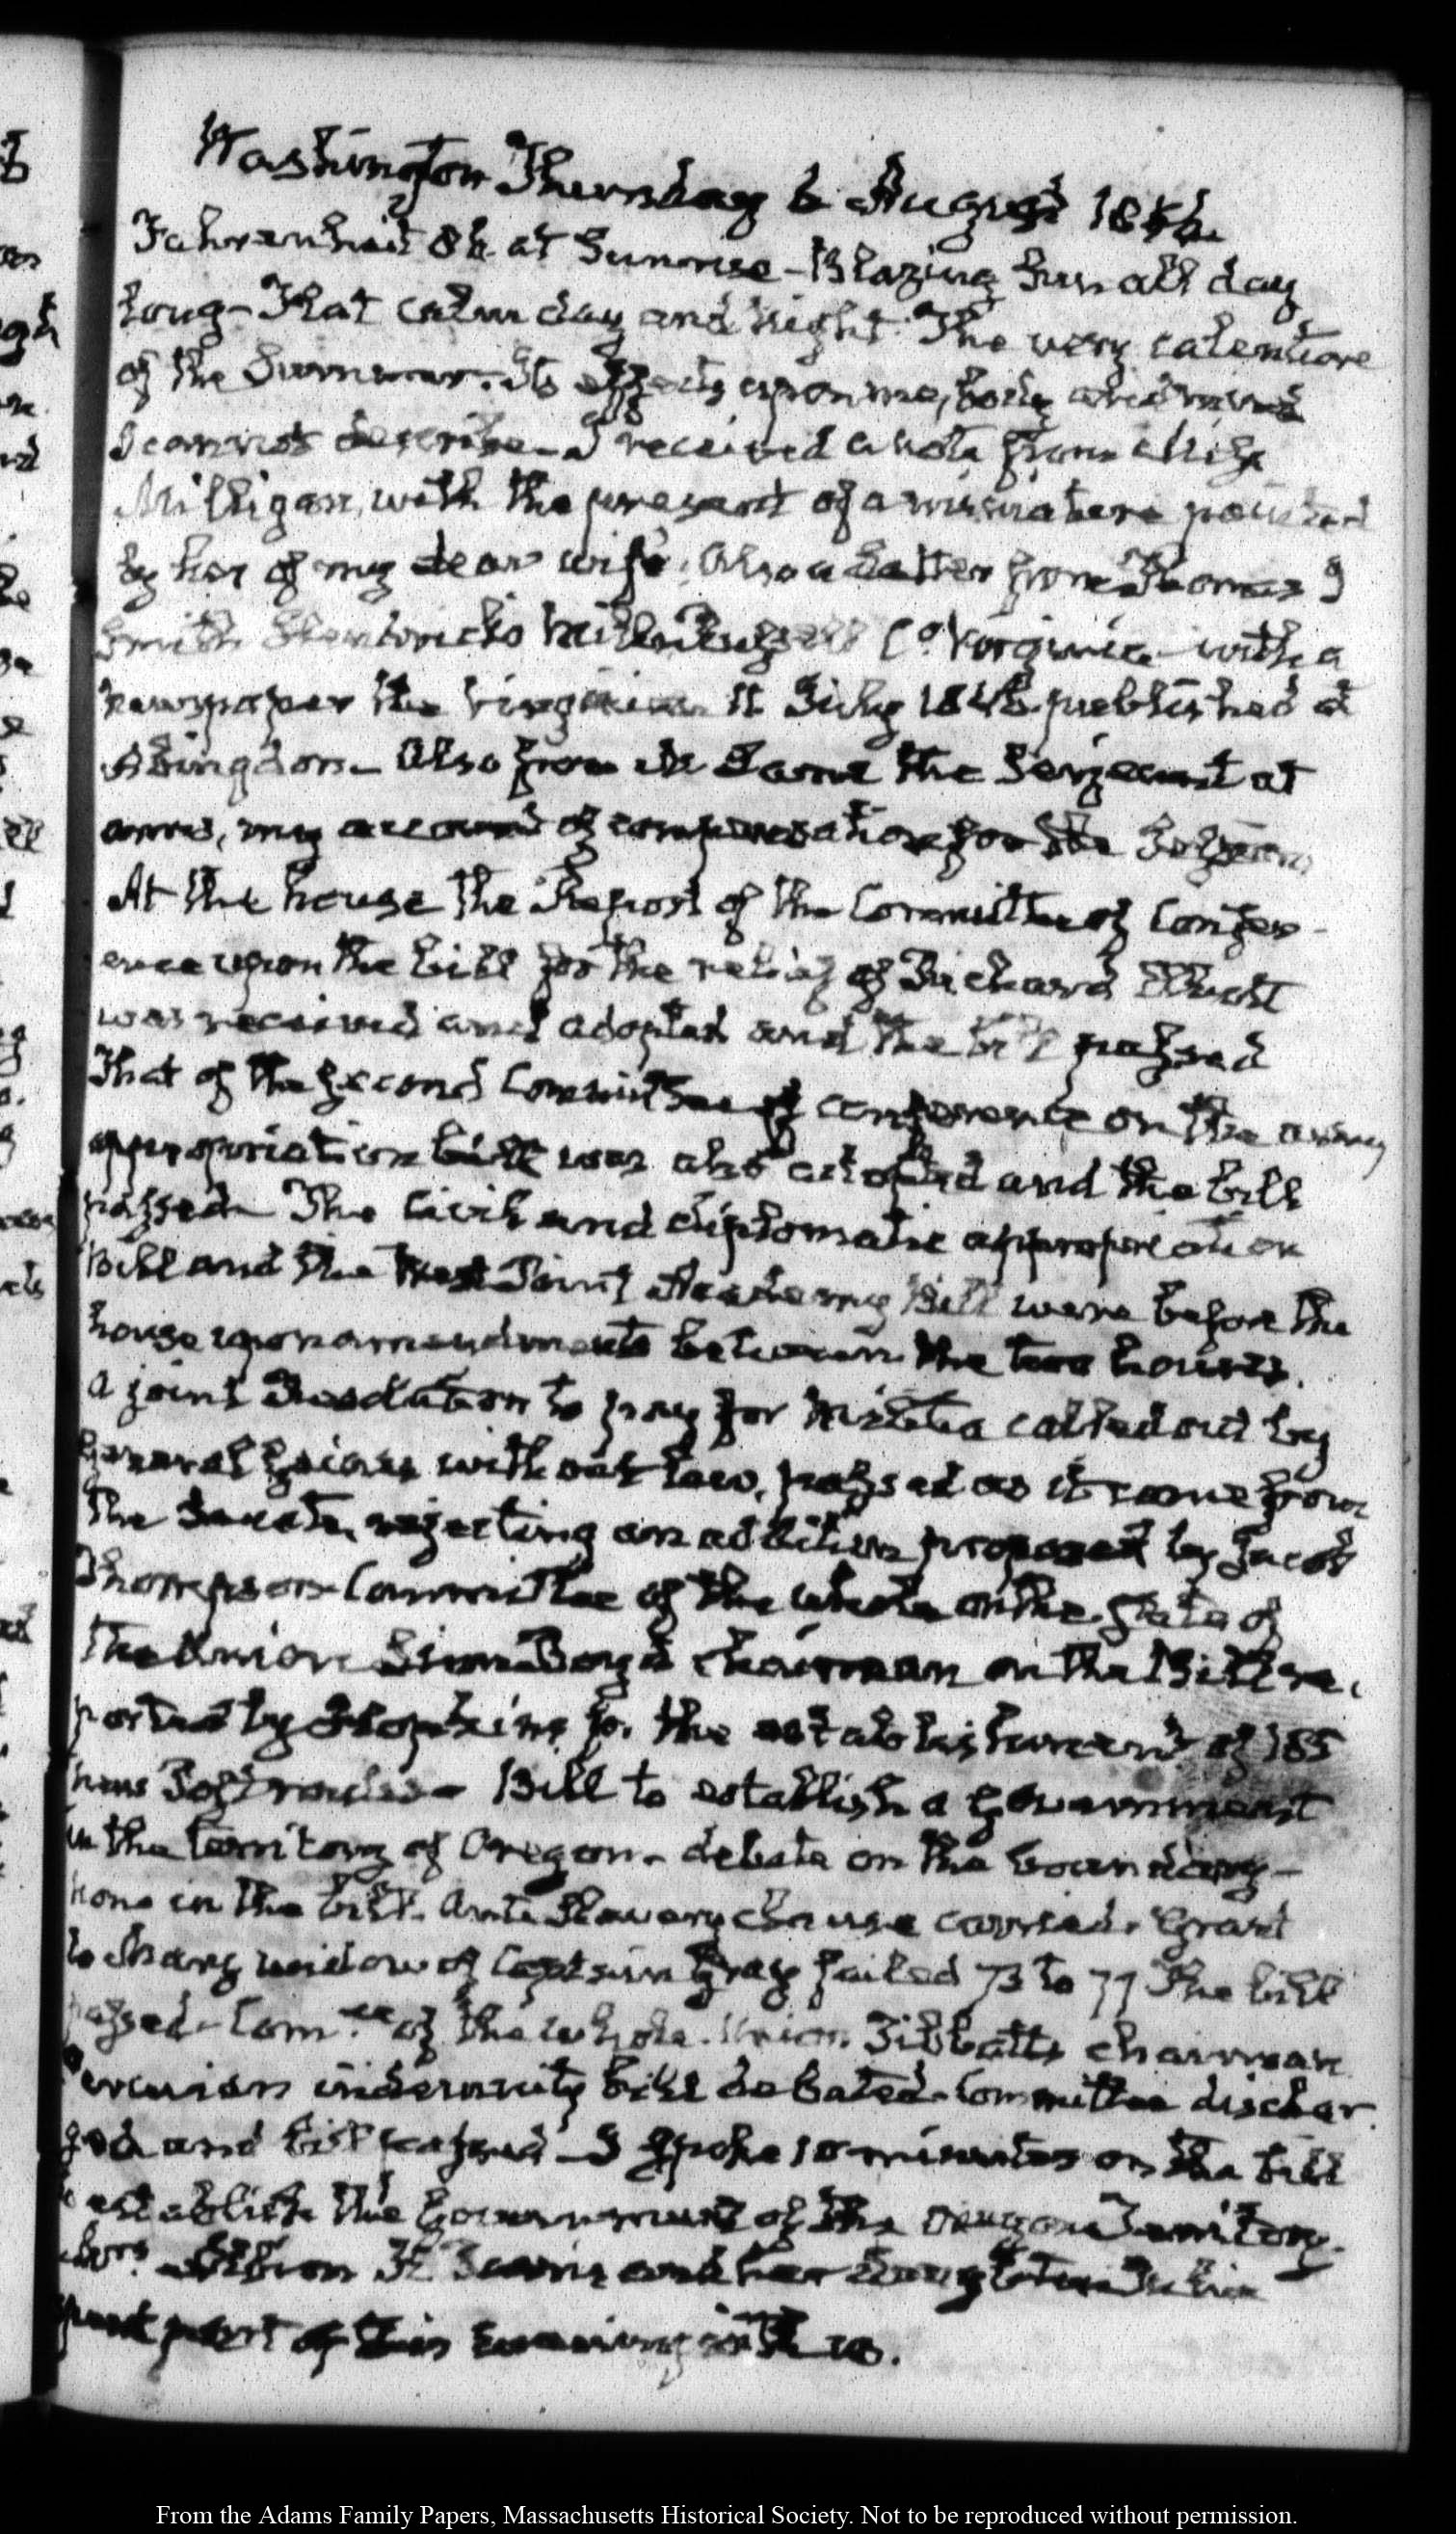 Washington Thursday 6 August 1846.
Fahrenheit 86 at Sunrise – Blazing Sun all day
long – Flat calm day and Night. The very calenture
of the Summer. Its effects upon me, body and mind
I cannot describe – I received a note from Miss
Milligan, with the present of a miniature painted
by her of my dear wife. Also a Letter from Thomas J
Smith Co. Virginia with a
newspaper the Virginian 11 July 1846 published at
Abingdon – Also from the Serjeant at
arms, my account of compensation for the Session
At the house the Report of the Committee of Confer-
ence upon the bill for the relief of Richard
was received and adopted and the bill passed
That of the second Committee of conference on the army
appropriation bill was also adopted and the bill
passed – The Civil and diplomatic appropriation
Bill and the West Point Academy Bill were before the
house upon amendments between the two houses.
A joint Resolution to pay for Militia called out by
General Gaines without law, passed as it came from
the Senate, rejecting an addition proposed by Jacob
Thompson – Committee of the whole on the State of
the Union Linn Boyd chairman on the Bill re-
ported by Hopkins for the establishment of 185
new Postroutes – Bill to establish a Government
in the territory of Oregon – debate on the boundary –
none in the bill. Anti Slavery clause carried. Grant
to widow of Captain Gray failed 73 to 77 The bill
passed – Comee. of the whole. Union. Tibbatts chairman
Peruvian indemnity bill debated. Committee dischar-
ged and bill passed – I spoke 10 minutes on the bill
to establish the Government of the Oregon Territory.
Mrs. and her daughter Julia
part of this evening with us.
From the Adams Family Papers, Massachusetts Historical Society. Not to be reproduced without permission.